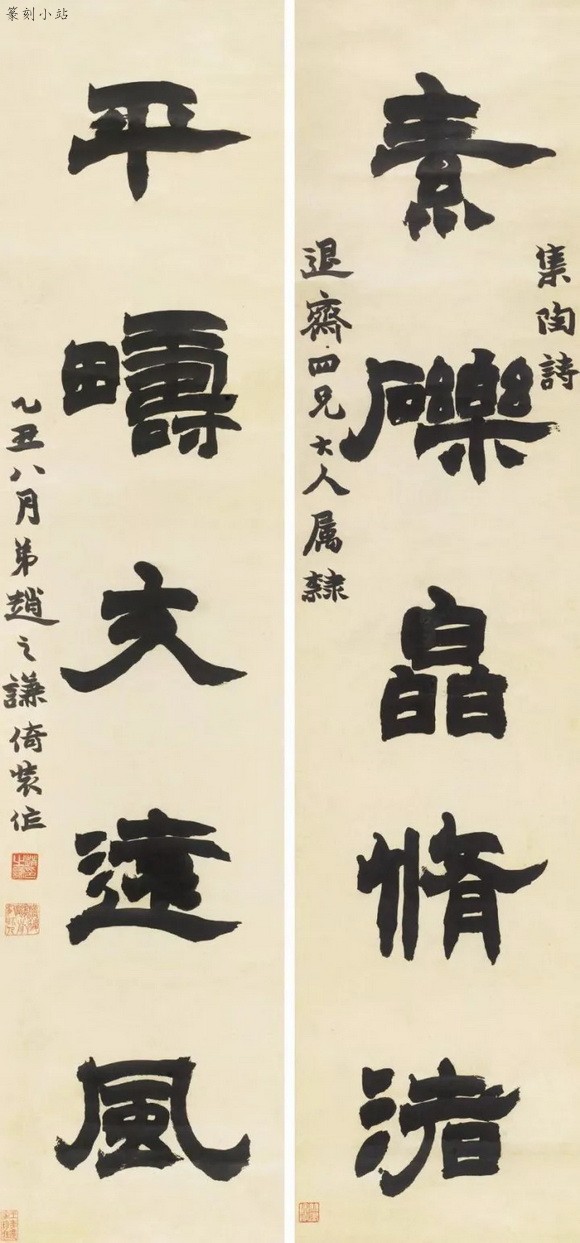 篆刻小站
集陶詩
素礫皛脩渚
退齋四兄大人属隸
平疇交遠風
乙丑八月弟趙之謙倚裝作